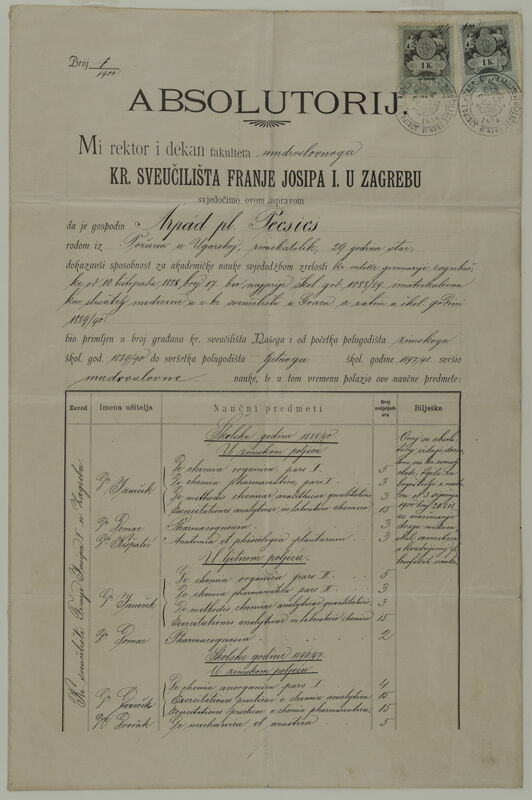 Broj 1
1900
1 K.
1 K.
ABSOLUTORIJ
Mi rektor i dekan fakulteta mudroslovnoga
KR. SVEUČILIŠTA FRANJE JOSIPA I. U ZAGREBU
svjedočimo ovom ispravom
da je gospodin Arpád pl. Pécsics
rodom iz Požuna u Ugarskoj, rimokatolik, 29 godina star,
dokazavši sposobnost za akademičke nauke svjedodžbom zrelosti kr. gimnazije zagrebač.
ke od 10. listopada 1888 broj 17. bio najprije škol. god. 1888/89. matrikulovan
kao slušatelj medicine u c. kr. sveučilištu u Gracu a zatim u škol. godini
1889/90
bio primljen u broj građana kr. sveučilišta Našega i od početka polugodišta zimskoga
škol. god. 1889/90 do svršetka polugodišta ljetnoga škol. godine 1897/98. svršio
mudroslovne nauke, te u tom vremenu polazio ove naučne predmete:
Zavod Imena učitelja Naučni predmeti Broj nedjeljnih ura Bilješke
Kr. sveučilište Franje Josipa I. u Zagrebu.
Školske godine 1889/90
U zimskom poljeću
Gp. Janeček
De chemia organica pars I. 5
De chemia pharmaceutica pars I. 3
De methodis chemiae analyticae qualitativae 3
Exercitationes analyticae in laboratorio chemico 15
Gp. Domac Pharmacognosia 3
Gp. Kišpatić Anatomia et phisiologia plantarum 3
U ljetnom poljeću.
Gp. Janeček
De chemia organica pars II. 5
De chemia pharmaceutica pars II. 3
De methodis chemiae analyticae quantitativae 3
Exercitationes analyticae in laboratorio chemico 15
Gp. Domac Pharmacognosia 2
Školske godine 1896/97.
U zimskom poljeću
Gp. Janeček
De chemia anorganica pars I. 4
Exercitationes practicae e chemia analytica 15
Exercitationes practicae e chemia pharmaceutica 15
Gp. Dvořák De mechanica et acustica 5